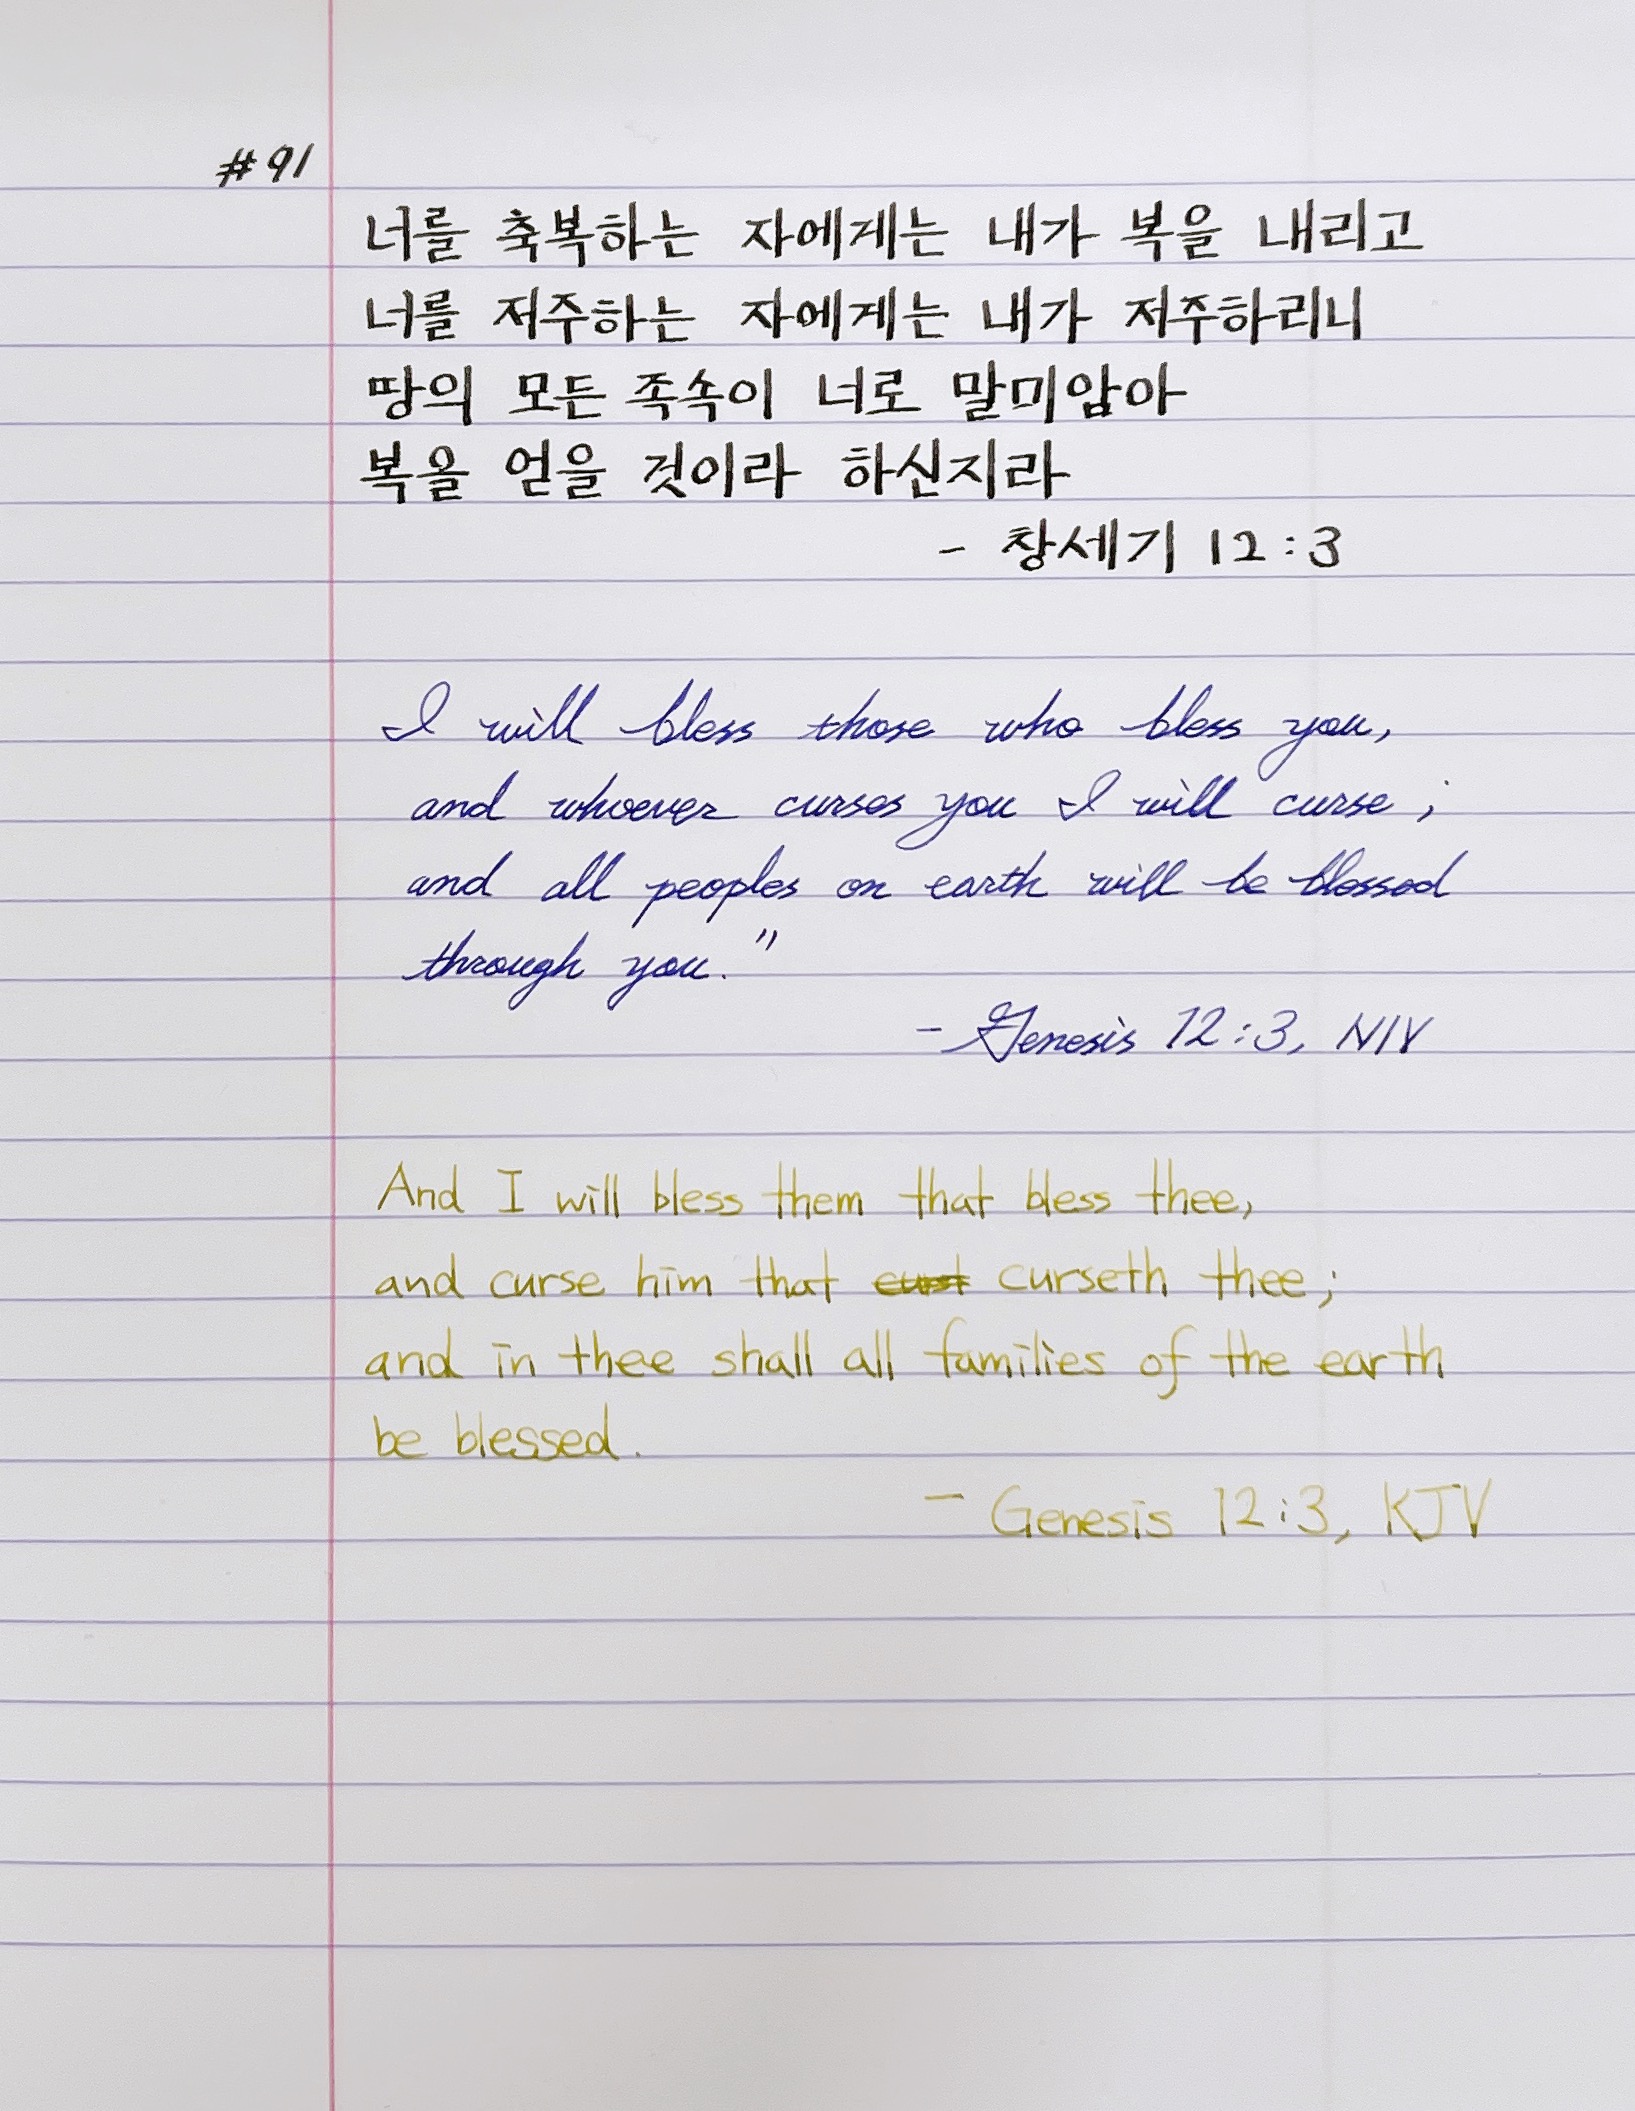 #91
너를 축복하는 자에게는 내가 복을 내리고
너를 저주하는 자에게는 내가 저주하리니
땅의 모든 족속이 너로 말미암아
복을 얻을 것이라 하신지라
- 창세기 12:3
I will bless those who bless you,
and whoever curses you I will curse;
and all peoples on earth will be blessed
through you."
- Genesis 12:3, NIV
And I will bless them that bless thee,
and curse him that curseth thee;
and in thee shall all families of the earth
be blessed.
- Genesis 12:3, KJV